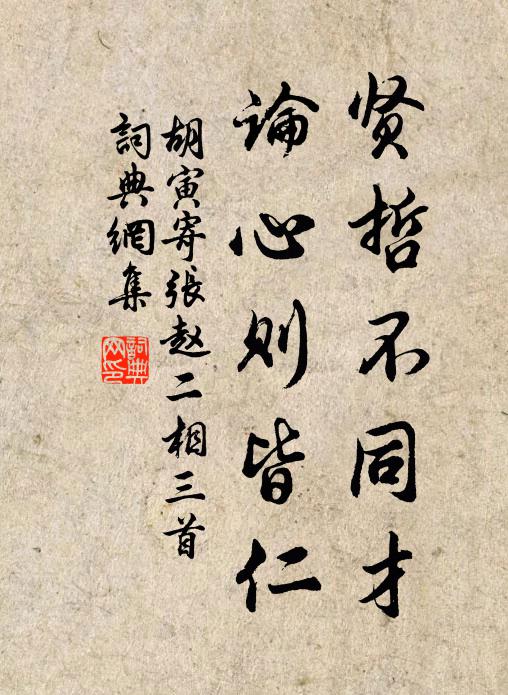 贤哲不同才
論心則皆仁
胡寅寄張赵二相三首
詞典網集
詞典網印